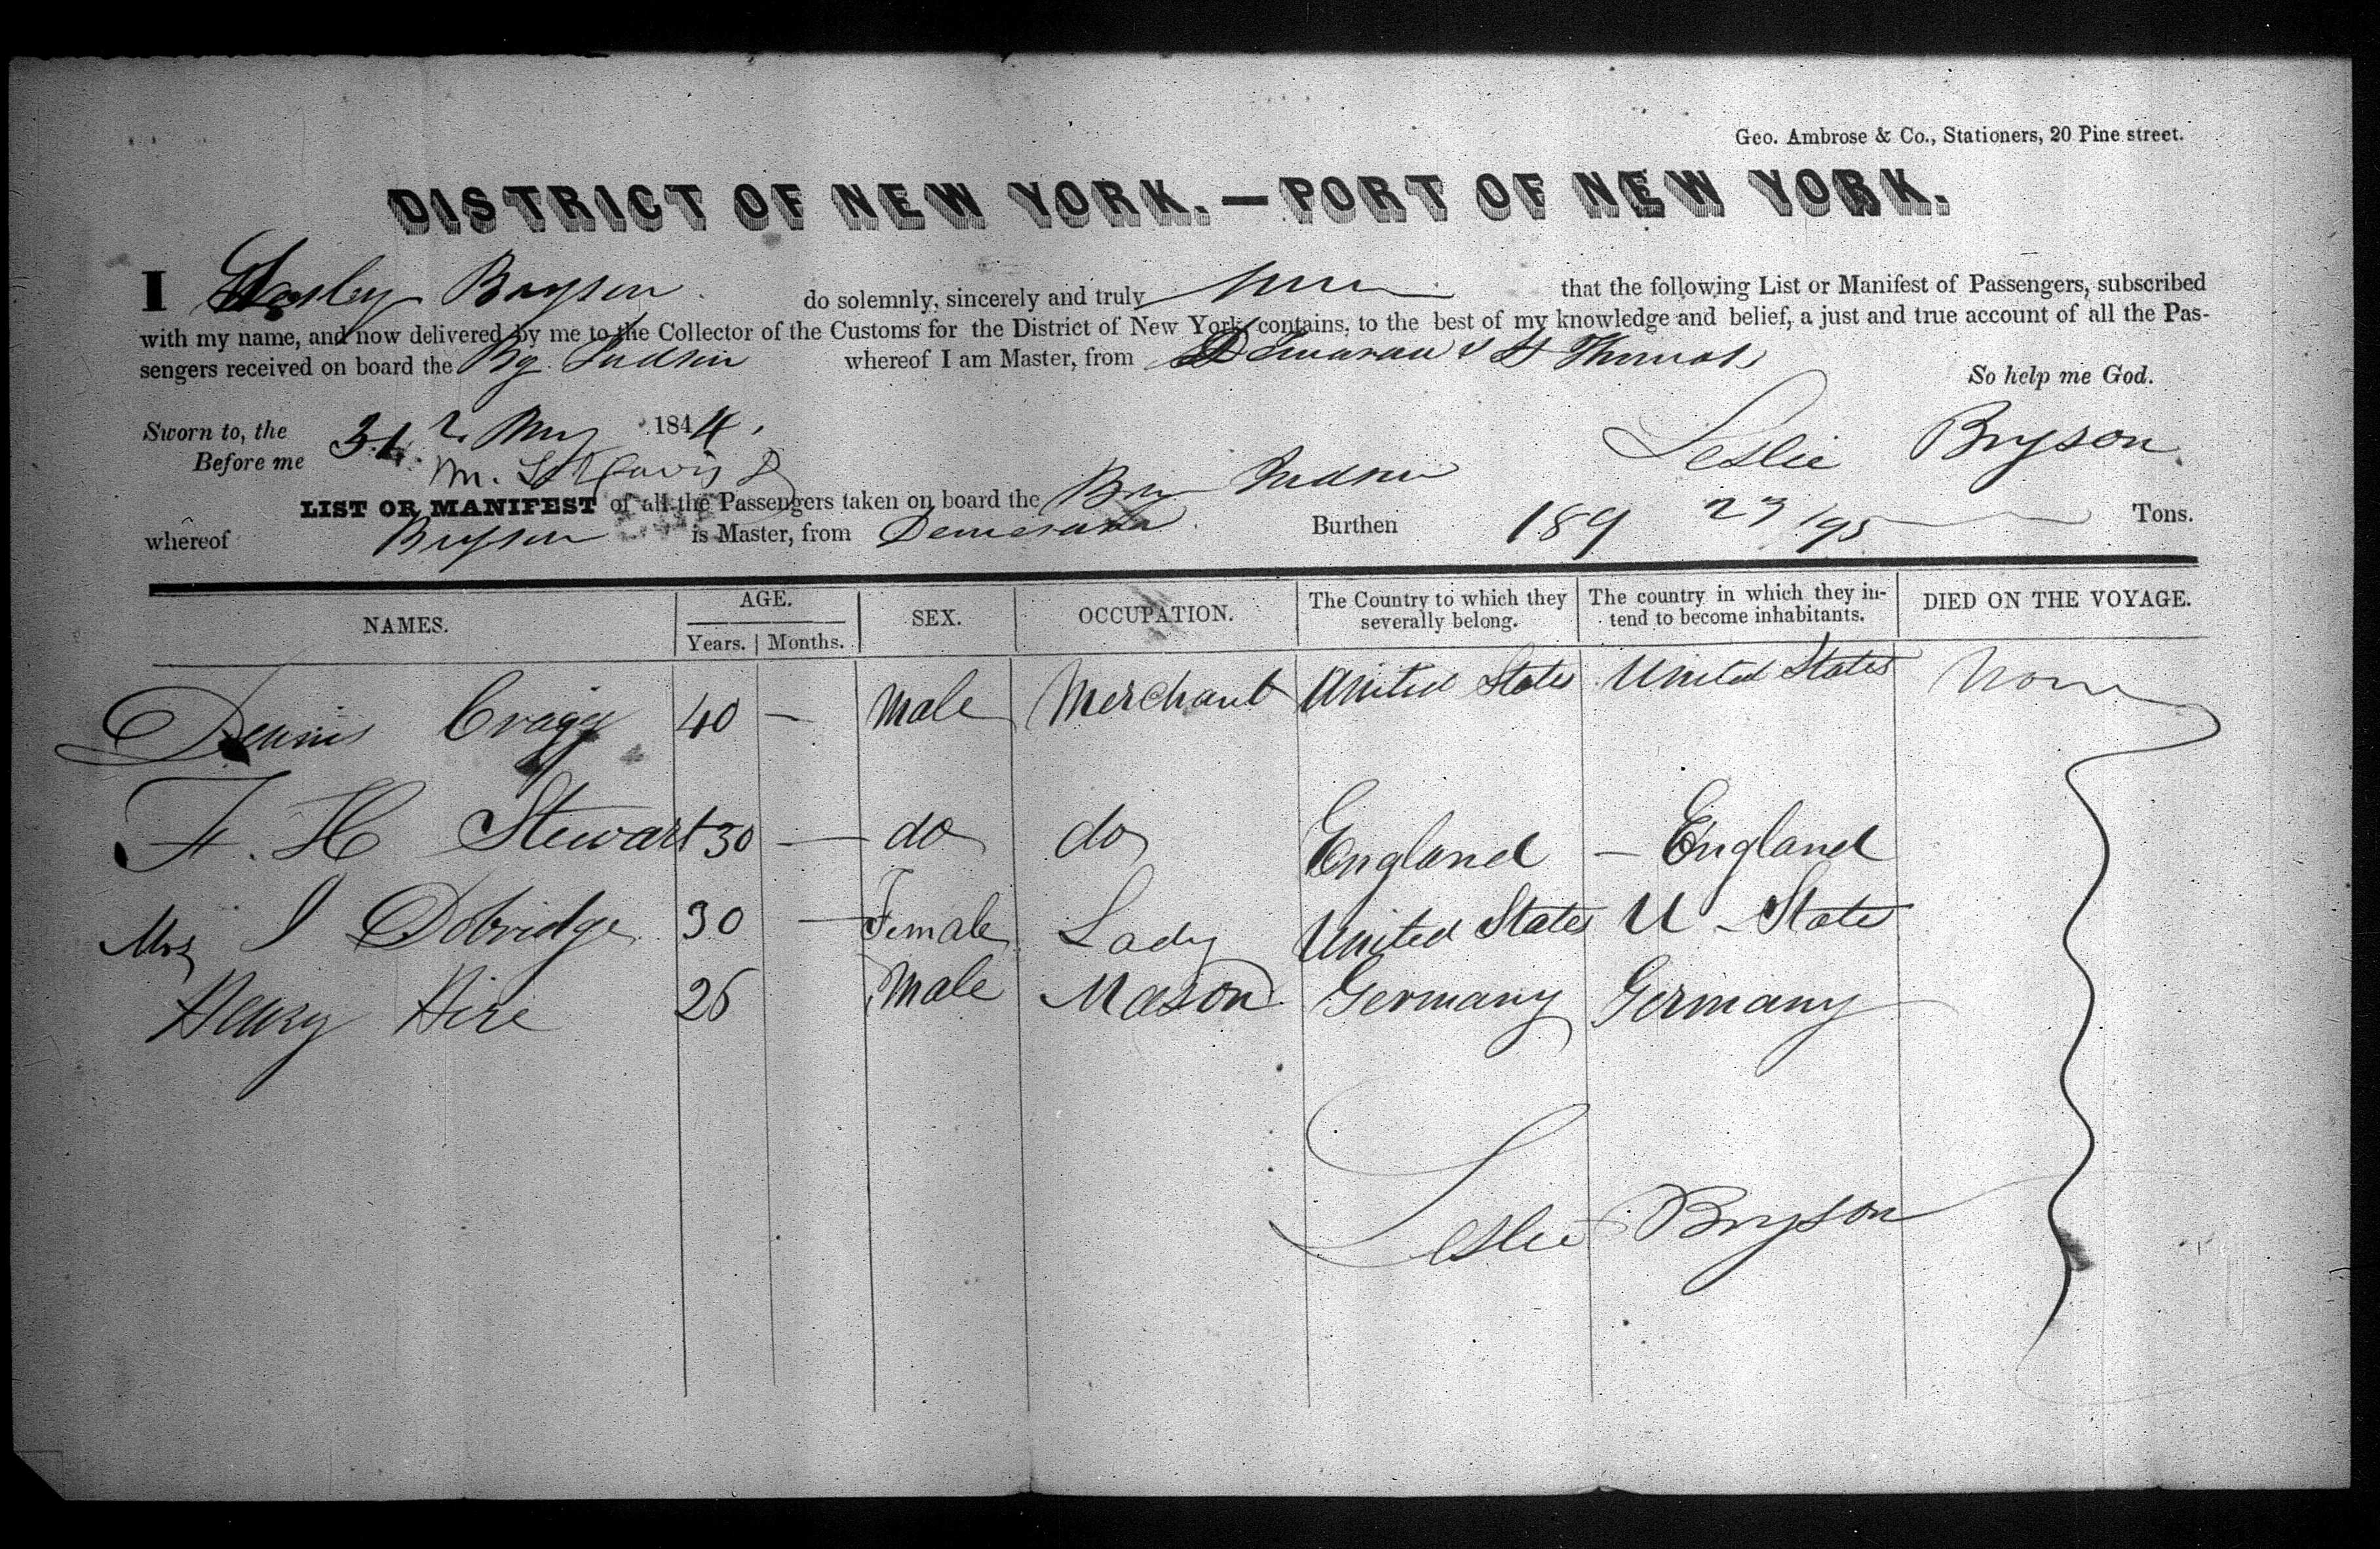 Geo. Ambrose & Co., Stationers, 20 Pine street.
DISTRICT OF NEW YORK.—PORT OF NEW YORK.
I Bryson do solemnly, sincerely and truly that the following List or Manifest of Passengers, subscribed
with my name, and now delivered by me to the Collector of the Customs for the District of New York, contains, to the best of my knowledge and belief, a just and true account of all the Pas-
sengers received on board the Bg. Judson whereof I am Master, from Demarara & St Thomas
So help me God.
Sworn to, the 31 May 1844.
Before me
Leslie Bryson
LIST OR MANIFEST of all the Passengers taken on board the Brig Judson
whereof Bryson is Master, from Demerara Burthen 189 23/95 Tons.
NAMES. AGE. Years. Months. SEX. OCCUPATION. The Country to which they severally belong. The country in which they in-tend to become inhabitants. DIED ON THE VOYAGE.
Dennis Cragg 40 — Male Merchant United States United States None
F. H Stewart 30 — do do England — England
Mrs J Dobridge 30 — Female Lady United States U – State
Henry Hire 26 Male Mason Germany Germany
Leslie Bryson